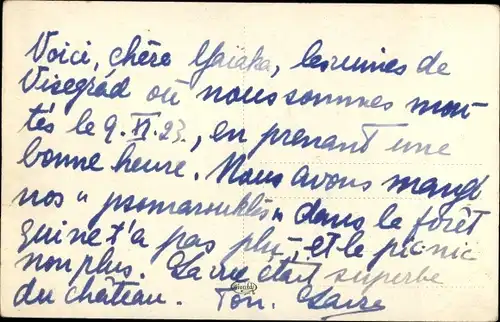 Voici, chère Maiaka, les ruines de
Visegrád où nous sommes mon-
tés le 9. XI. 23., en prenant une
bonne heure. Nous avons mangé
nos „psomarouklès" dans la forêt
qui ne t'a pas plu, et le pic-nic
non plus. La vue était superbe
du château. Ton.